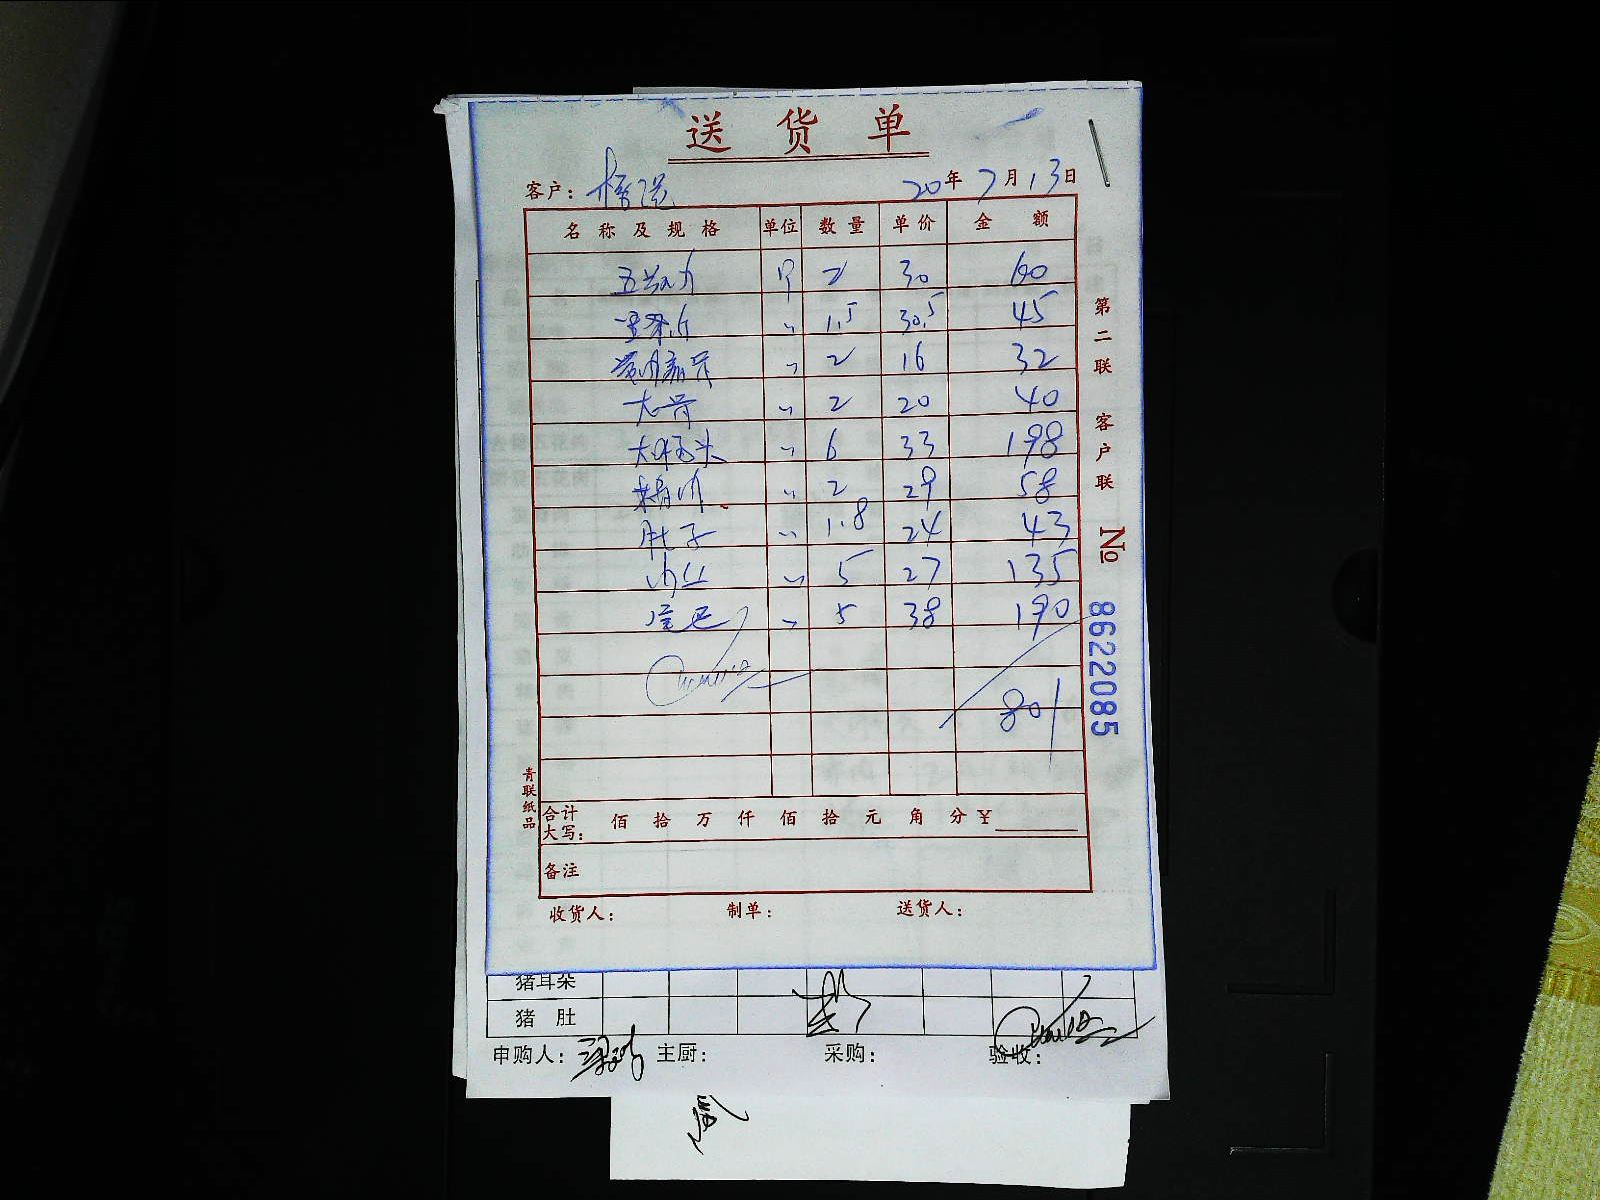 送货单
客户： 20年7月13日
名称及规格 单位 数量 单价 金额
2 30 60
〃 1.5 30.5 45
〃 2 16 32
大骨 〃 2 20 40
〃 6 33 198
〃 2 29 58
肚子 〃 1.8 24 43
肉丝 〃 5 27 135
尾巴 〃 5 38 190
801
合计大写： 佰 拾 万 仟 佰 拾 元 角 分 ￥
备注
收货人： 制单： 送货人：
第二联 客户联
No 8622085
青联纸品
猪耳朵
猪肚
申购人： 主厨： 采购： 验收：